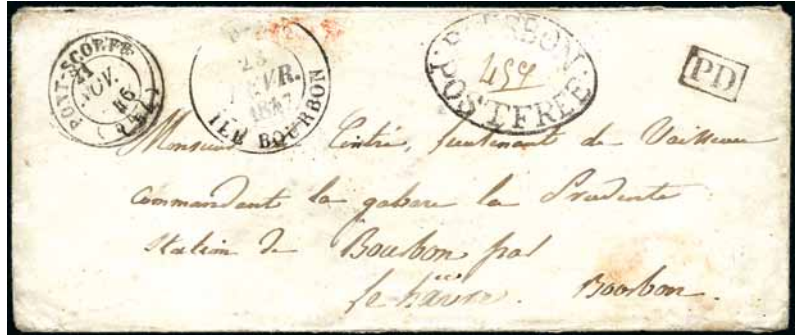 PONT-SCORFF
21
NOV.
46
23
FEVR.
1847
ILE BOURBON
BOURBON
457
POST FREE
PD
Monsieur Cintré, lieutenant de Vaisseau
commandant la gabare la Prudente
Station de Bourbon par
le hâvre. Bourbon.